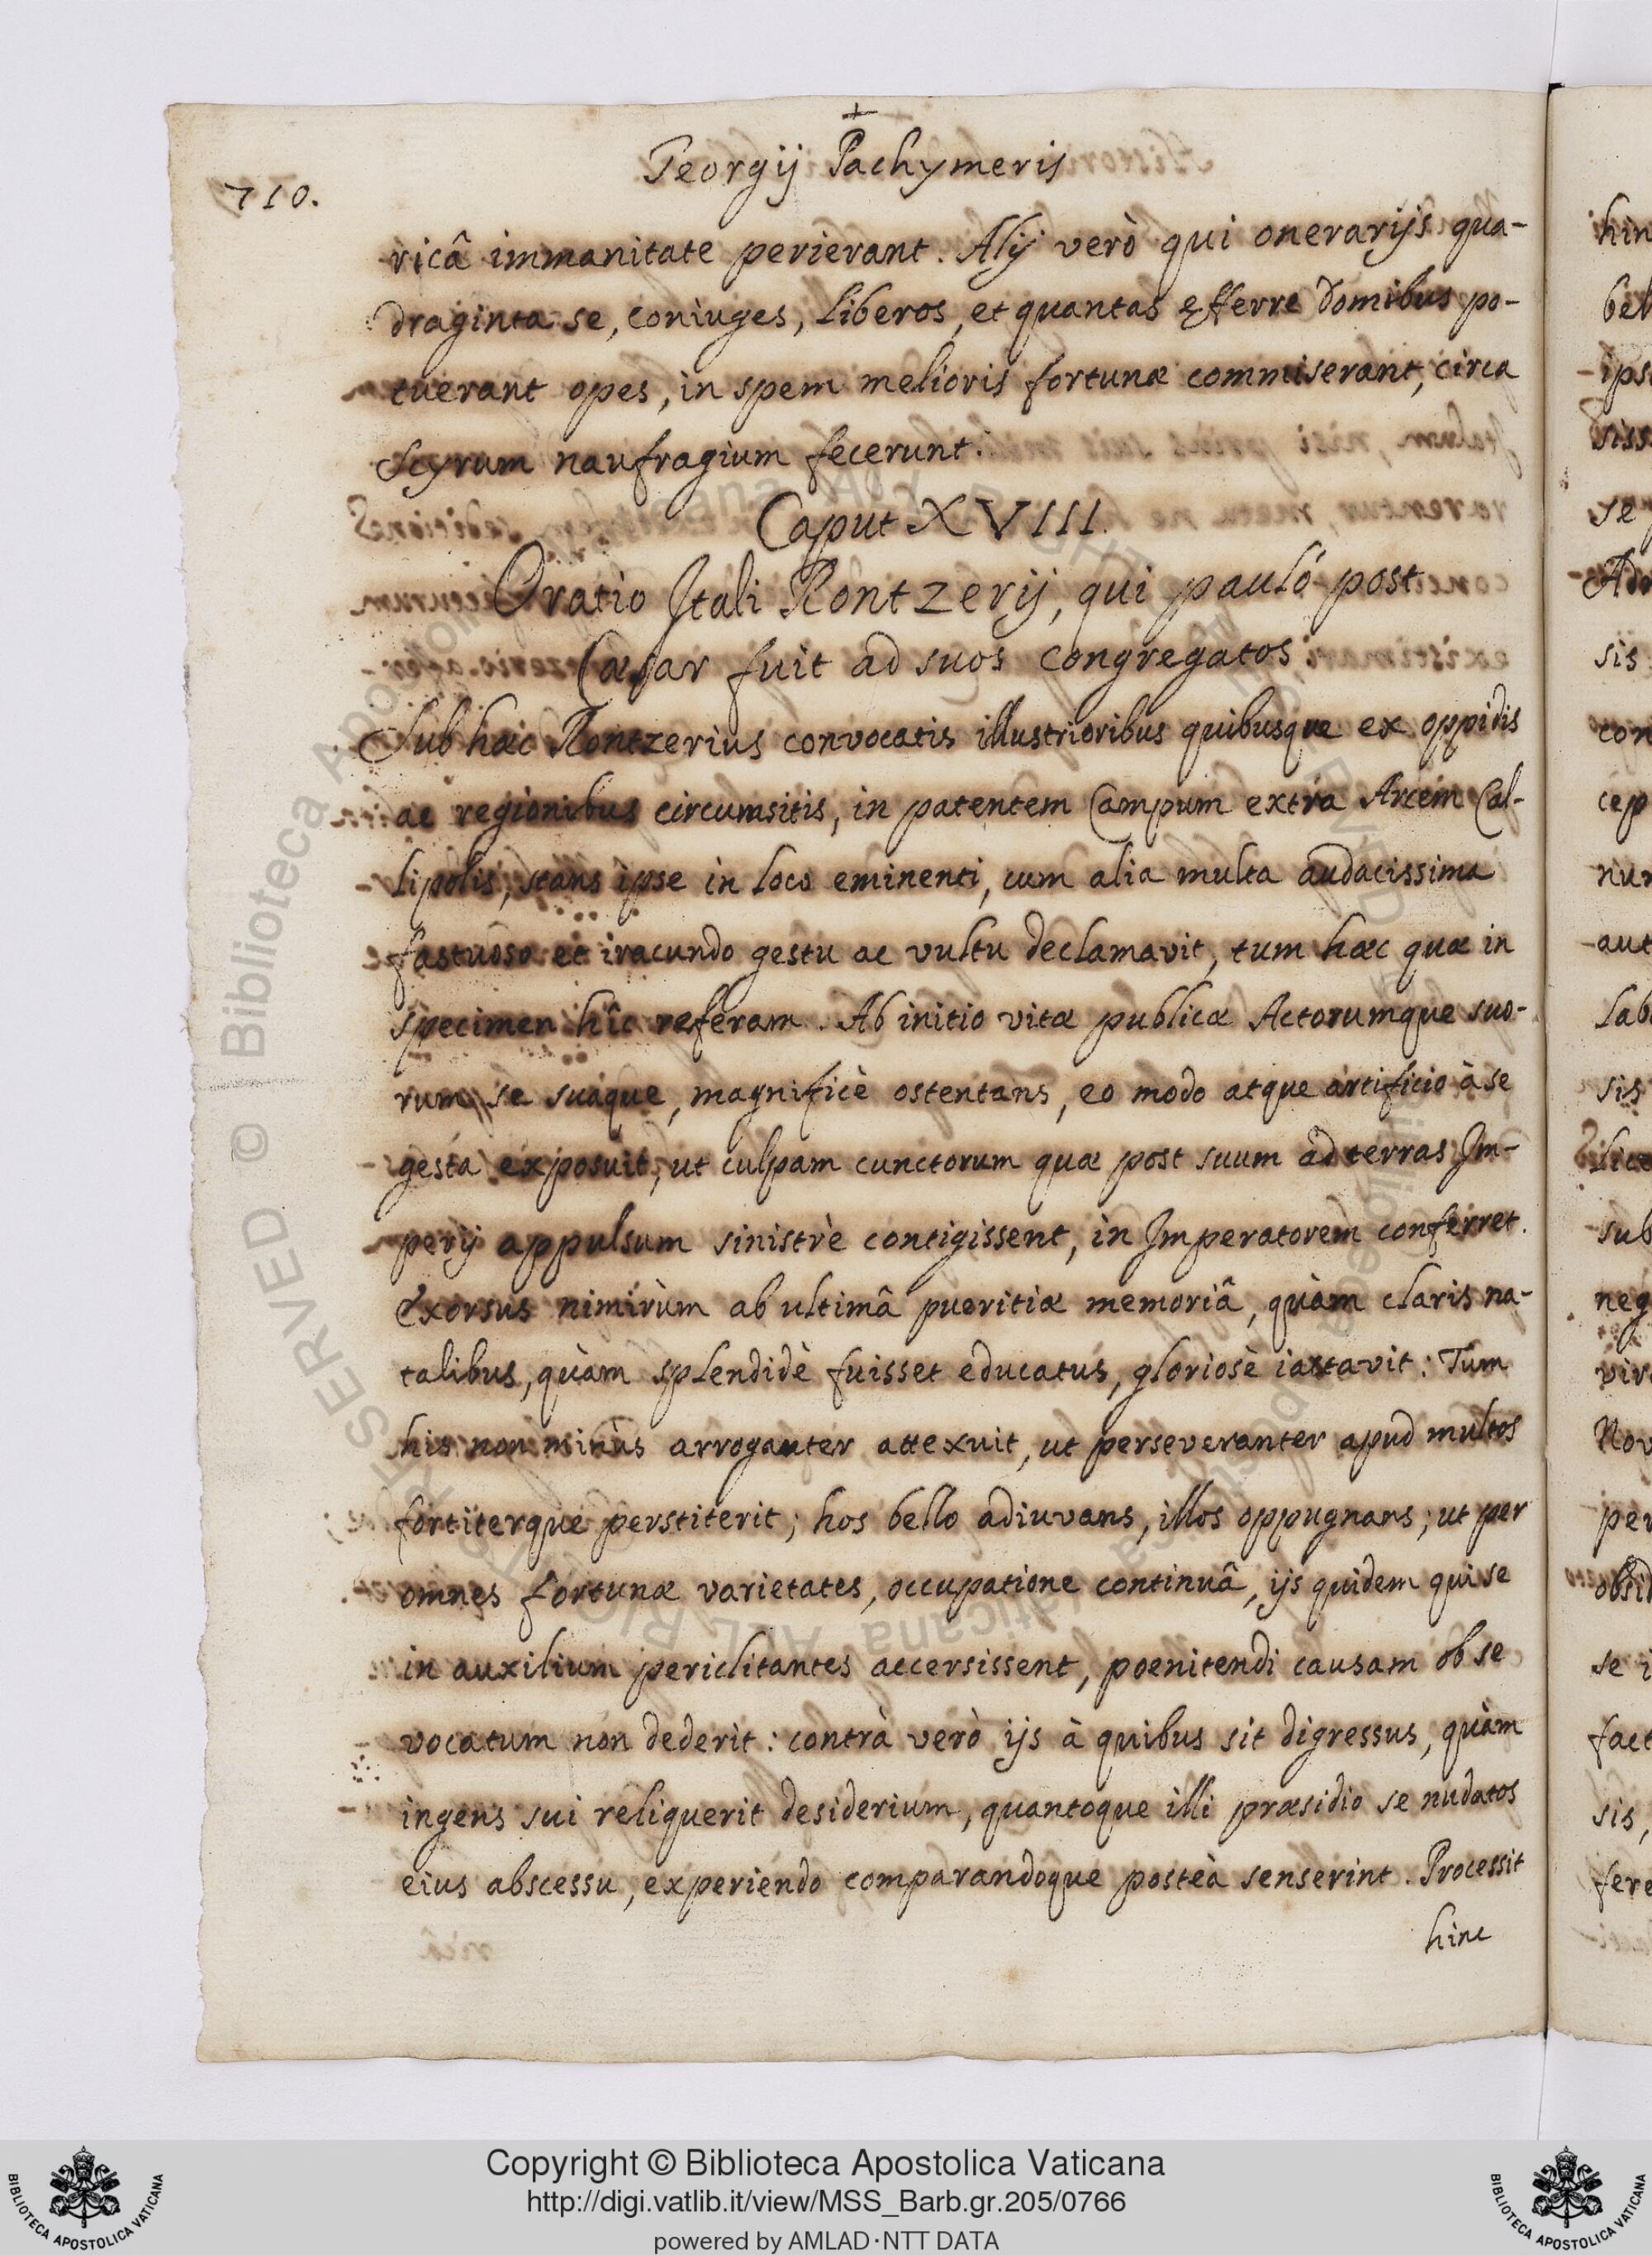 +
Georgij Pachymeris
710.
ricâ immanitate perierant. Alij verò qui onerarijs qua-
draginta se, coniuges, liberos, et quantas efferre domibus po-
tuerant opes, in spem melioris fortunæ commiserant, circa
Scyrum naufragium fecerunt.
Caput XVIII.
Oratio Itali Rontzerij, qui paulò post
Cæsar fuit ad suos congregatos.
Sub hæc Rontzerius convocatis illustrioribus quibusque ex oppidis
ac regionibus circumsitis, in patentem Campum extra Arcem Cal-
lipolis, stans ipse in loco eminenti, cum alia multa audacissima
fastuoso et iracundo gestu ac vultu declamavit, tum hæc quæ in
specimen hîc referam. Ab initio vitæ publicæ Actorumque suo-
rum se suaque, magnificè ostentans, eo modo atque artificio à se
gesta exposuit, ut culpam cunctorum quæ post suum ad terras Im-
perij appulsum sinistrè contigissent, in Imperatorem conferret.
Exorsus nimirùm ab ultimâ pueritiæ memoriâ, quàm claris na-
talibus, quàm splendidè fuisset educatus, gloriosè iactavit: Tum
his non minùs arroganter attexuit, ut perseveranter apud multos
fortiterque perstiterit; hos bello adiuvans, illos oppugnans; ut per
omnes fortunæ varietates, occupatione continuâ, ijs quidem qui se
in auxilium periclitantes accersissent, poenitendi causam ob se
vocatum non dederit: contrà verò ijs à quibus sit digressus, quàm
ingens sui reliquerit desiderium, quantoque illi præsidio se nudatos
eius abscessu, experiendo comparandoque posteà senserint. Processit
hinc
Copyright © Biblioteca Apostolica Vaticana
http://digi.vatlib.it/view/MSS_Barb.gr.205/0766
powered by AMLAD·NTT DATA
BIBLIOTECA APOSTOLICA VATICANA
BIBLIOTECA APOSTOLICA VATICANA